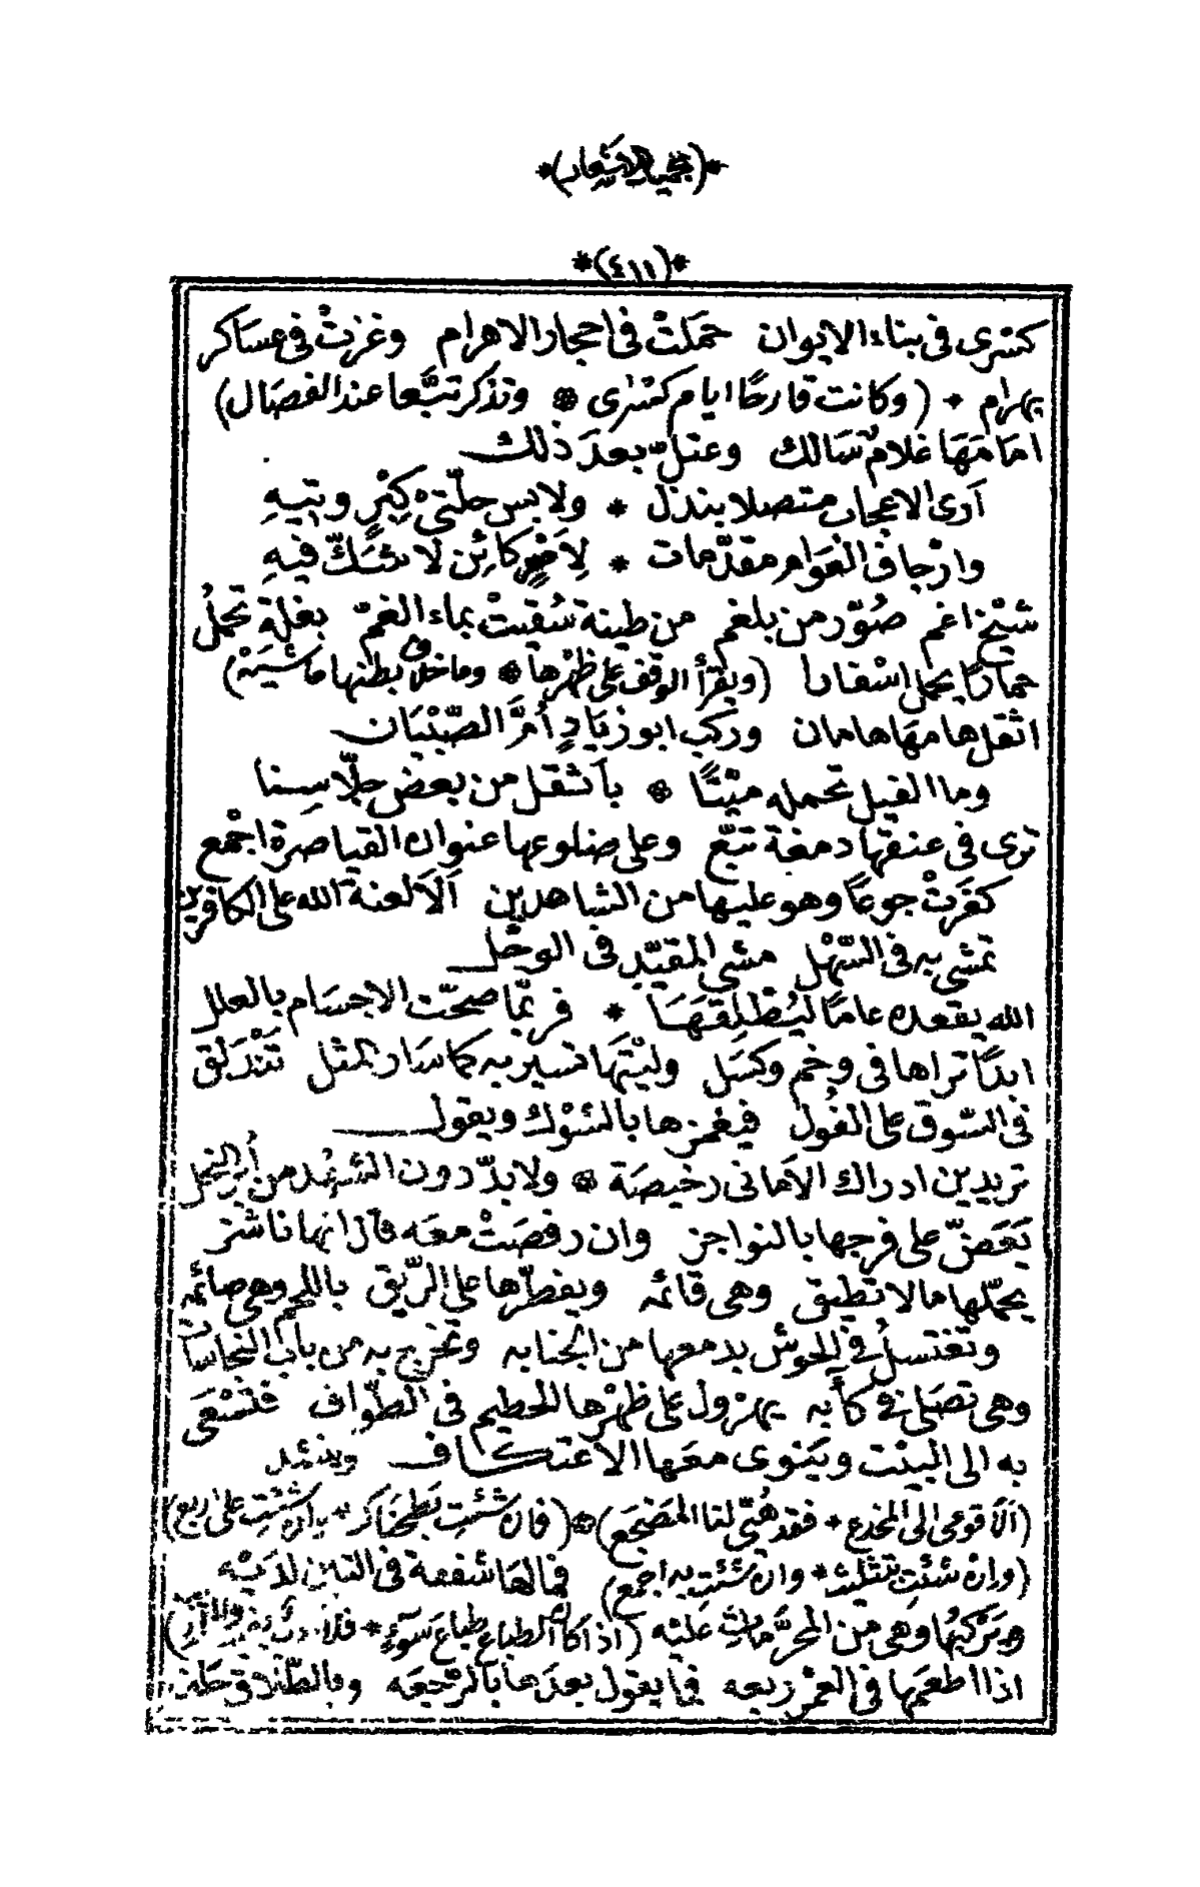 *(٤١١)*
كسْرى فى بناء الايوان حمَلتْ فى احجار الاهرام وغزتْ فى عساكر
بهرام * (وكانت قارحًا ايام كسْرى * وتذكر تبَّعا عند الفصَال)
امَامَهَا غلامٌ سَالك وعتلّ بعدَ ذلك
اَرى الاعجاب متصلا بنذل * ولابس حلّتىْ كِبْرٍ وتيهِ
وارْجاف العَوام مقدّمات * لِاَمْرٍ كائِن لا شكّ فيهِ
شيْخ اغم صُوّر من بلغم من طينة سُقيتْ بماء الغمّ بغلة تحملُ
حمارًا يحمل اسْفارا (ويقرأ الوقف على ظهْرها * وما خلا بطنها ما شيَهْ)
اثقل هامهَا هامان وركب ابو زيَادٍ أمَّ الصّبْيَان
وما الفيل تحمله ميْتًا * باَثقل من بعض جلّاسِنا
ترى فى عنقها دمغة تبّع وعلى ضلوعها عنوان القياصرة اجْمع
كفَرتْ جوعًا وهو عليها من الشاهدين اَلاَ لعنة الله على الكافرين
تمشى به فى السّهْل مشى المقيّد فى الوحْل
الله يقعده عامًا ليُطْلِقهَا * فربّما صحّت الاجسَام بالعلل
ابدًا تراها فى وخم وكسَل وليْتهَا تسير به كما سَار المثل تَنْدَلق
فى السّوق على الفُول فيغمزها بالشوْك ويقول
تريدين ادراك الاَمانى رخيصَة * ولا بدّ دون الشهْد من أبر النحل
يَعَضّ على فرجها بالنواجز وان رفصَتْ معَه قال انها ناشز
يحمّلها ما لا تطيق وهى قائمه ويفطّرها على الرّيق باللحم وهى صائمه
وتغتسلُ فى الحوش بدمعها من الجنابه وتخرج به من باب النجاسا
وهى تصَلى فى كآبه يهرْول على ظهْرها للحطيم فى الطّواف فتسْعَى
به الى البيْت ويَنوى معَها الاعتكاف وينشد
(اَلاَ قومى الى المخدع * فقد هُيّى لنا المَضْجَع) * (فان شئت بطحْناك * وان شئتِ على اربع)
(وان شئتِ بثلثيه * وان شئتِ به اجمع) فما لهَا شفعة فى التاين لدَيْه
ويَرْكبُها وهى من المحرَّمات عَليْه (اذا كان الطباع طباع سَوْءٍ *
اذا اطعمها فى العمْر ربعه فما يقول بعدَها بالرّجعَه وبالطّلاق